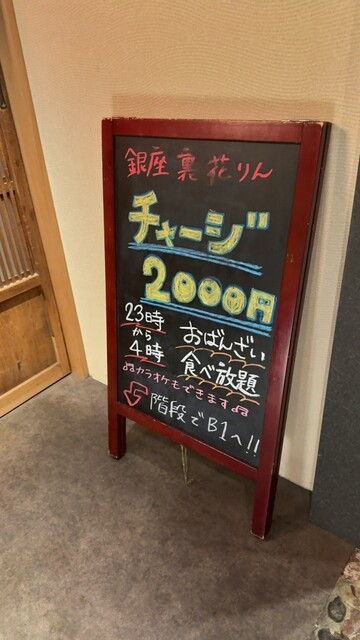 銀座 裏 花りん
チャージ
2000円
23時
から
4時
おばんざい
食べ放題
♫カラオケもできます♫
階段でB1へ!!